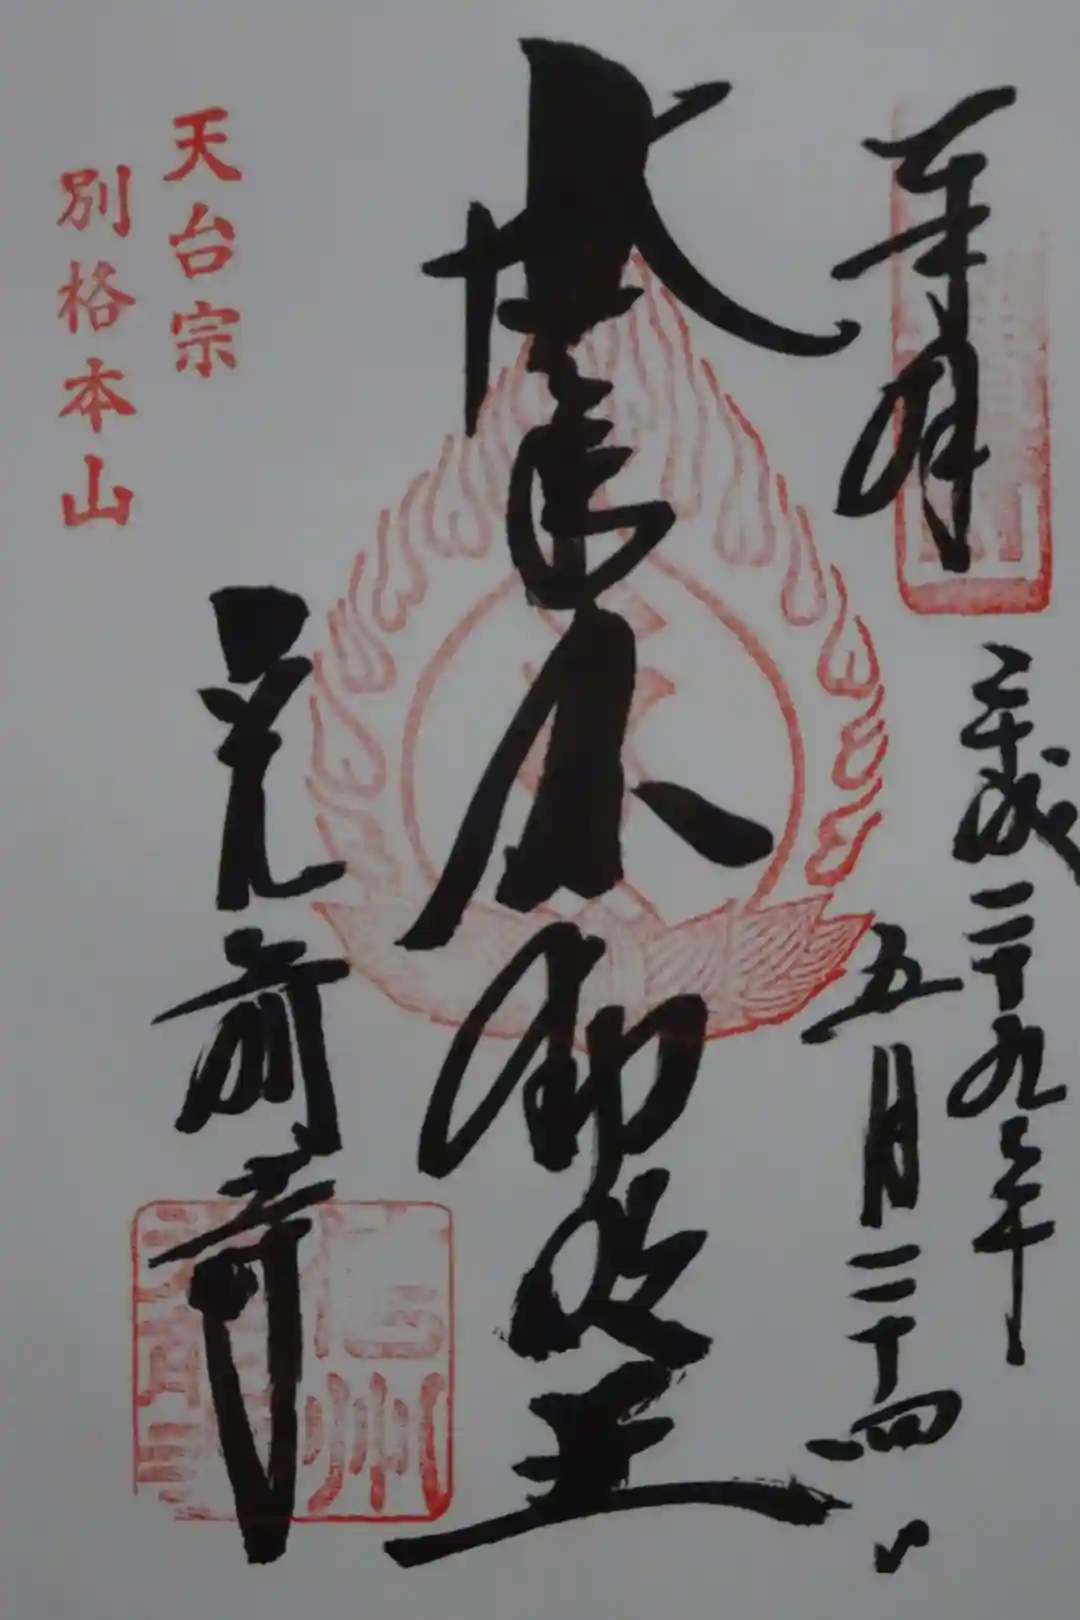 奉拝
平成二十九年
五月二十四日
大聖不動明王
光前寺
天台宗
別格本山
信州
光前寺